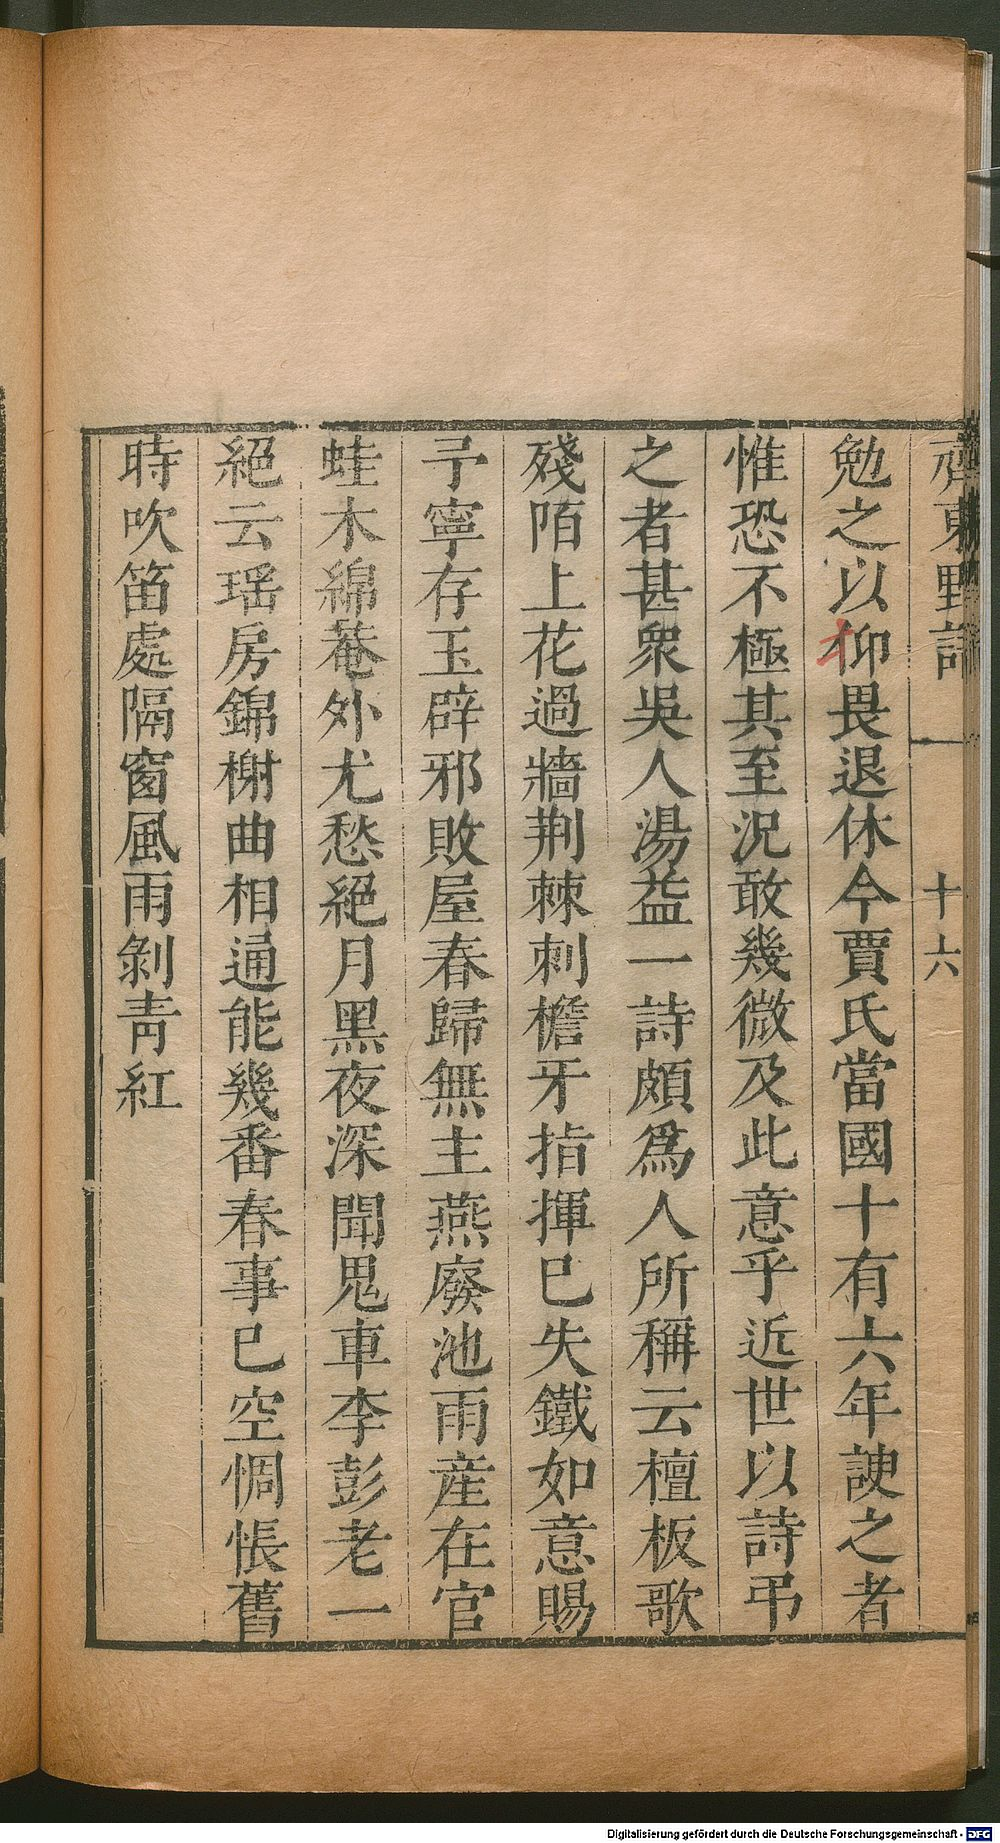 齊東野語
十六
勉之以仰畏退休今賈氏當國十有六年諛之者
惟恐不極其至況敢幾微及此意乎近世以詩弔
之者甚衆吳人湯益一詩頗爲人所稱云檀板歌
殘陌上花過牆荆棘刺檐牙指揮已失鐵如意賜
予寧存玉辟邪敗屋春歸無主燕廢池雨産在官
蛙木綿菴外尤愁絕月黑夜深聞鬼車李彭老一
絕云瑶房錦榭曲相通能幾番春事已空惆悵舊
時吹笛處隔窗風雨剝靑紅
Digitalisierung gefördert durch die Deutsche Forschungsgemeinschaft - DFG